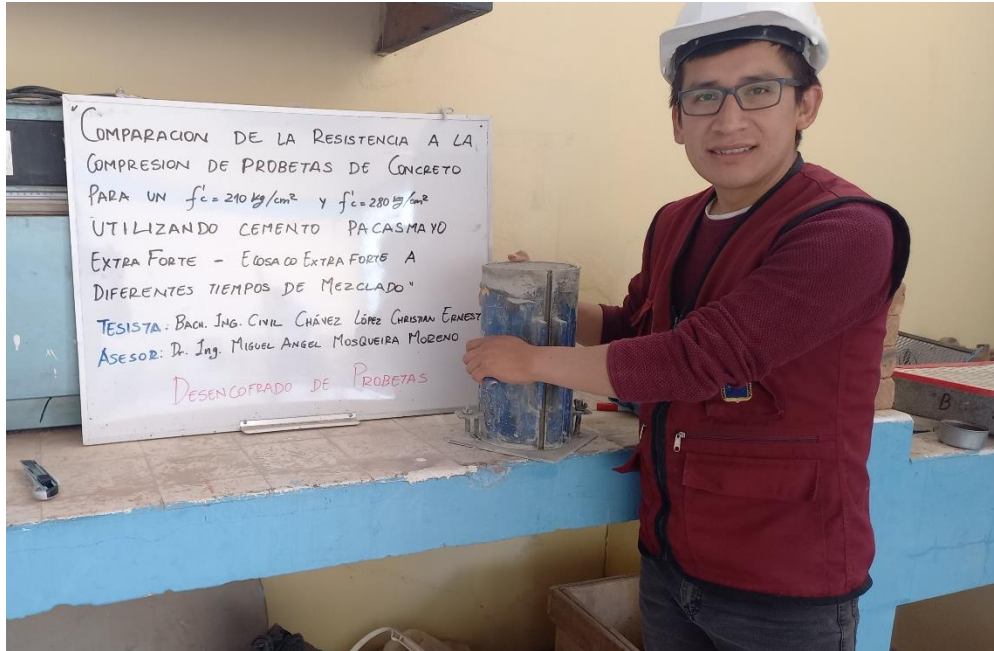 "COMPARACION DE LA RESISTENCIA A LA
COMPRESION DE PROBETAS DE CONCRETO
PARA UN f'c = 210 kg/cm² Y f'c = 280 kg/cm²
UTILIZANDO CEMENTO PACASMAYO
EXTRA FORTE - ECOSACO EXTRA FORTE A
DIFERENTES TIEMPOS DE MEZCLADO"
TESISTA: BACH. ING. CIVIL CHÁVEZ LÓPEZ CHRISTIAN ERNEST
ASESOR: Dr. Ing. MIGUEL ANGEL MOSQUEIRA MORENO
DESENCOFRADO DE PROBETAS
B